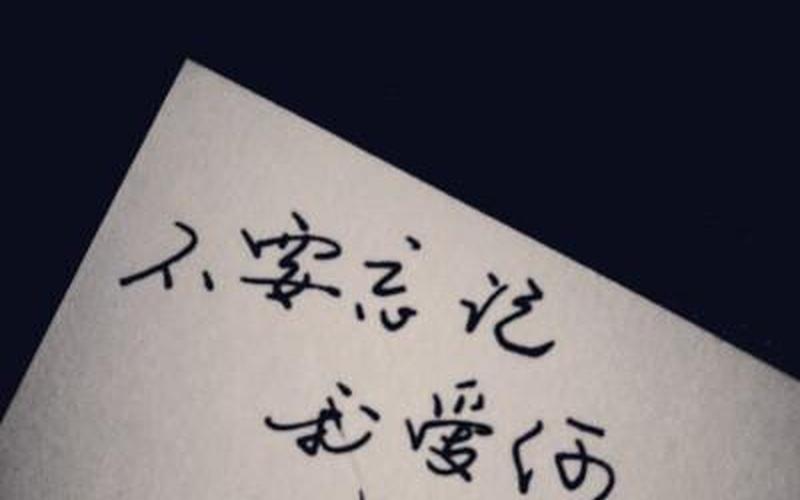 不要忘记
我爱你